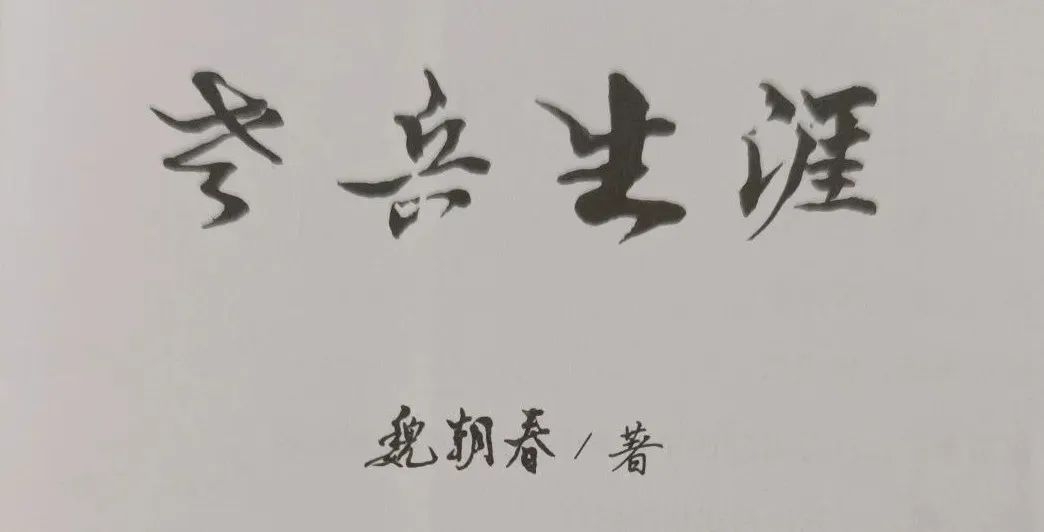 老兵生涯
魏朝春/著